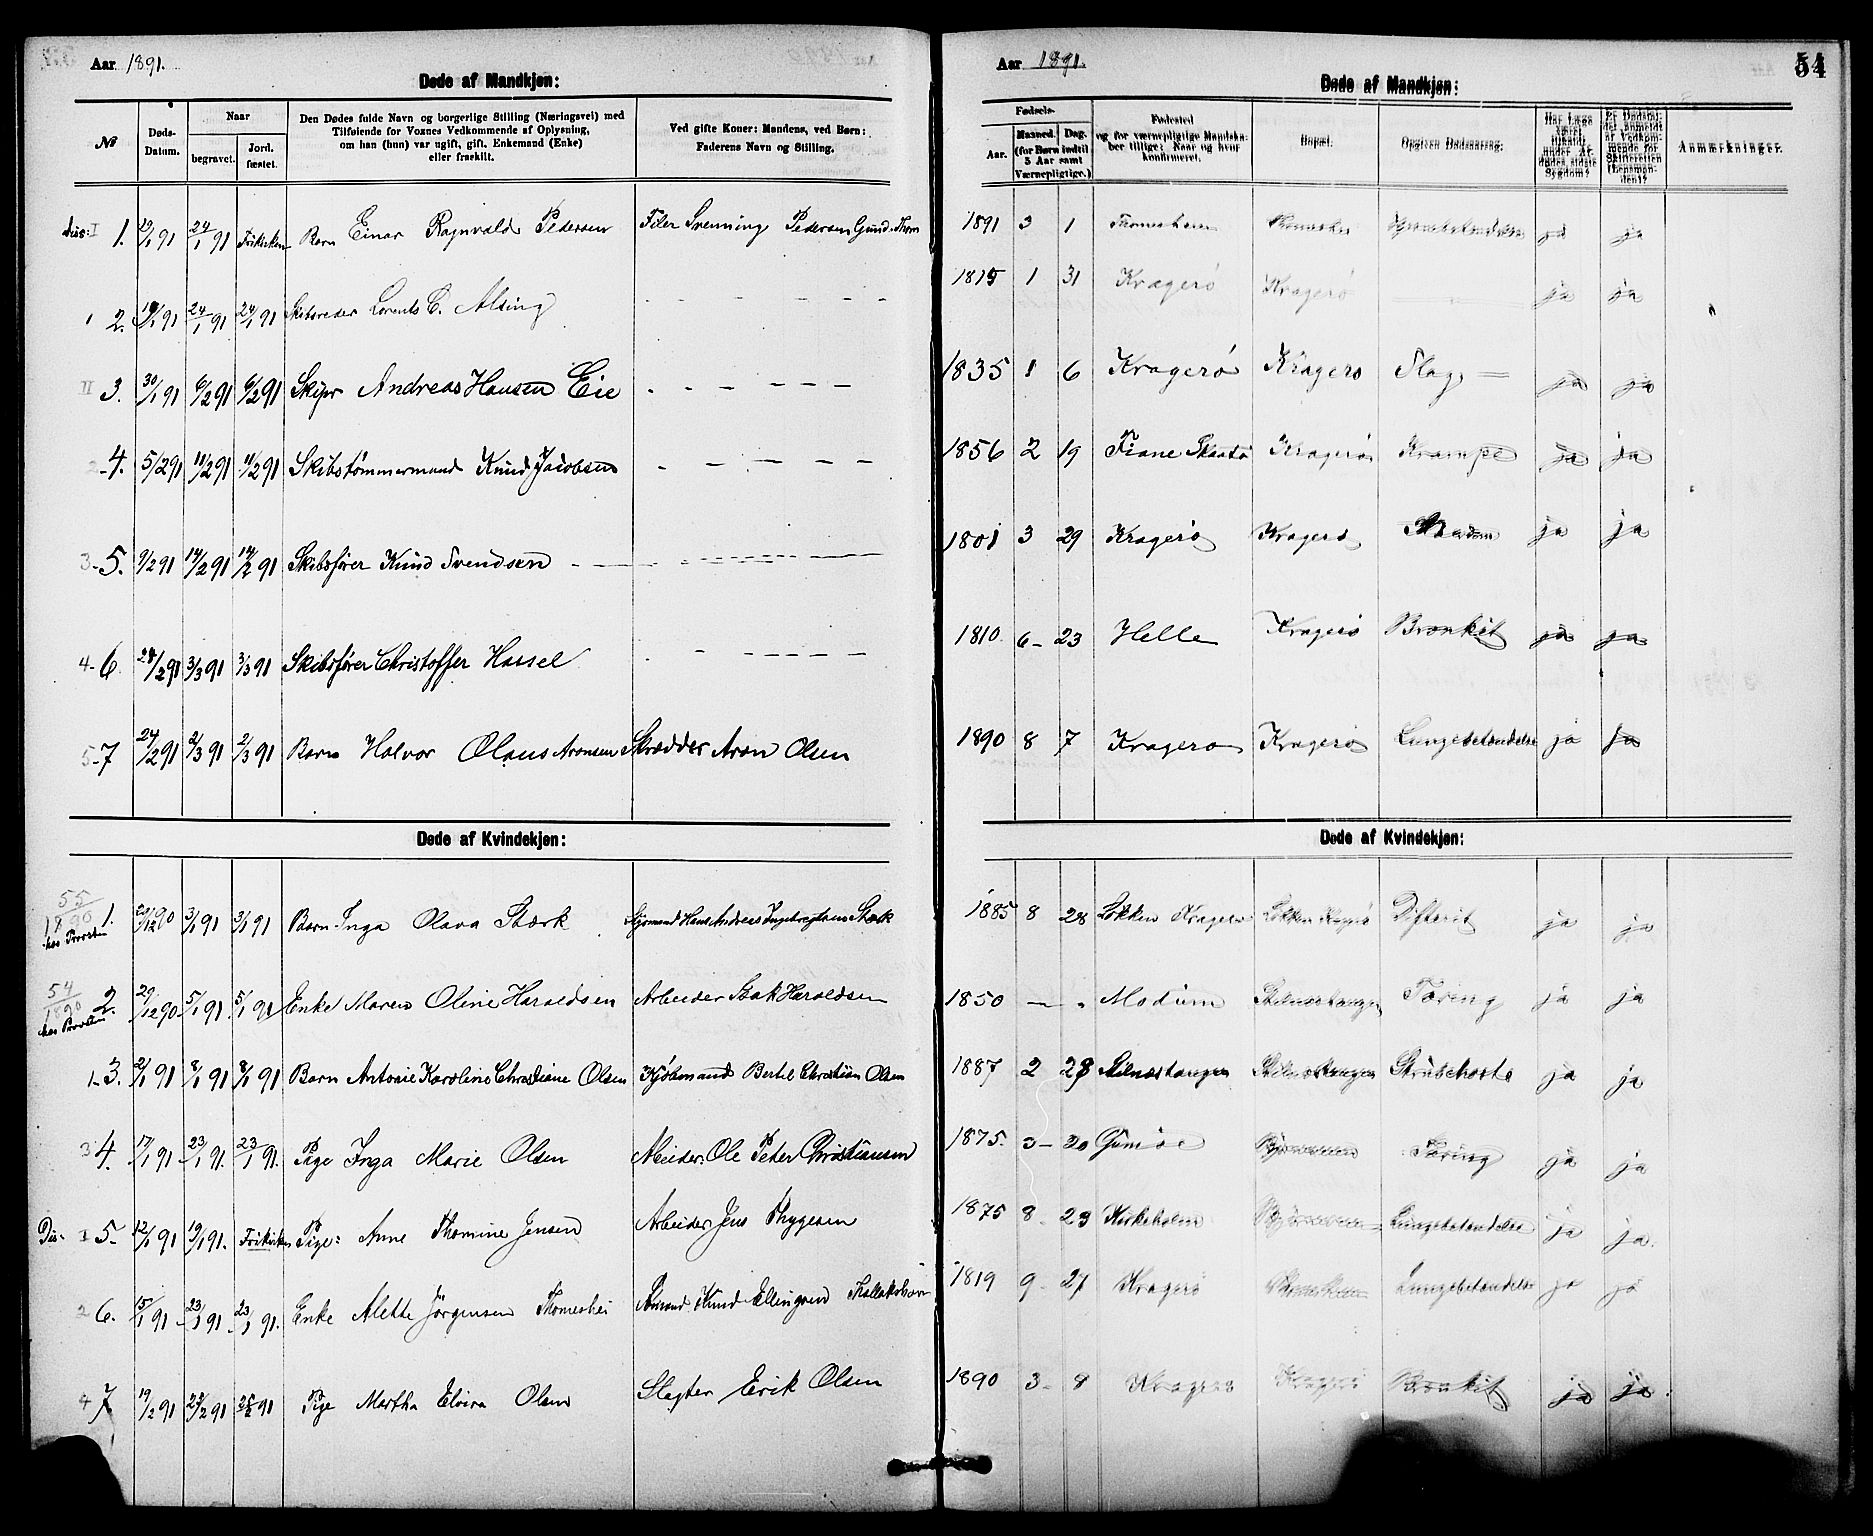 Aar 1891.
Døde af Mandkjøn:
№
Døds-Datum.
Naar
begravet.
Jord. fæstet.
Den Dødes fulde Navn og borgerlige Stilling (Næringsvei) med
Tilføiende for Voxnes Vedkommende af Oplysning,
om han (hun) var ugift, gift, Enkemand (Enke)
eller fraskilt.
Ved gifte Koner: Mandens, ved Børn:
Faderens Navn og Stilling.
dis: I 1. 19/1 91 24/1 91 Frikirken Barn Einar Ragnvald Pedersen Filer Svenning Pedersen
1 2. 24/1 91 24/1 91 Skibsreder Lorents C. Alsing
II 3. 30/1 91 6/2 91 6/2 91 Skipr Andreas Hansen Eie
2-4. 5/2 91 11/2 91 11/2 91 Skibstømmermand Knud Jacobsen
3-5. 9/2 91 14/2 91 14/2 91 Skibsfører Knud Svendsen
4-6. 3/3 91 3/3 91 Skibsfører Christoffer Hassel
5-7 24/2 91 2/3 91 2/3 91 Barn Halvor Olaus Aronsen Skrædder Aron Olsen
Døde af Kvindekjøn:
55/1890 hos Provsten 1. 3/1 91 3/1 91 Barn Inga Olava Stærk Hans Andreas
54/1890 hos Provsten 2. 29/12 90 5/1 91 5/1 91 Enke Maren Oline Haroldsen Arbeider Isak Haroldsen
1-3. 2/1 91 8/1 91 8/1 91 Barn Antonie Karoline Christiane Olsen Kjöbmand Bertel Christian Olsen
3 4. 17/1 91 23/1 91. 23/1 91. Pige Inga Marie Olsen Ole Peter Christiansen
Dis- I 5- 12/1 91 19/1 91. Frikirken Pige: Anne Thomine Jensen Arbeider Jens Thygesen
2 6. 15/1 91 23/1 91 23/1 91. Enke Alette Jörgensen Thomeshei Knud
4 7 19/2 91 91 91 Pige Martha Elvira Olsen Slagter Erik Olsen
Aar 1891.
54
Døde af Mandkjøn:
Fødsels-
Aar.
Maaned.
Dag.
(for Børn indtil
5 Aar samt
Værnepligtige.)
Fødested
og for værnepligtige Mandska-
ber tillige: Naar og hvor
konfirmeret.
Bopæl.
Opgiven Dødsaarsag.
Har Læge
været
tilkaldt
under Af-
dødes sidste
Sygdom?
Er Dødsfal-
det anmeldt
til Vedkom-
mende for
Skifteretten
(Lensman-
den)?
Anmærkninger.
1891 3 1 ja ja
1815 1 31 Kragerö Kragerö ja ja
1835 1 6 Kragerö Kragerö Slag ja ja
1856 2 19 Fiane Skaatö Kragerö Krampe ja ja
1801 3 29 Kragerö Kragerö ja ja
1810 6- 23 Helle Kragerö Bronkit ja ja
1890 8 7 Kragerö Kragerö Lungebetændelse ja ja
Døde af Kvindekjøn:
1885 8 28 Løkken Kragerö Løkken Kragerö Difterit ja ja
1850 — " Modum Stilnestangen Tæring ja ja
1887 2 28 Stilnestangen Stilnestangen Strubehoste ja ja
1875. 3- 20 Gumöe Tæring ja ja
1875 8- 23 Kirkeholm Lungebetændelse ja ja.
1819 9- 27 Kragerö Lungebetændelse ja ja
1890 3- 8 Kragerö Kragerö Bronkit ja ja.